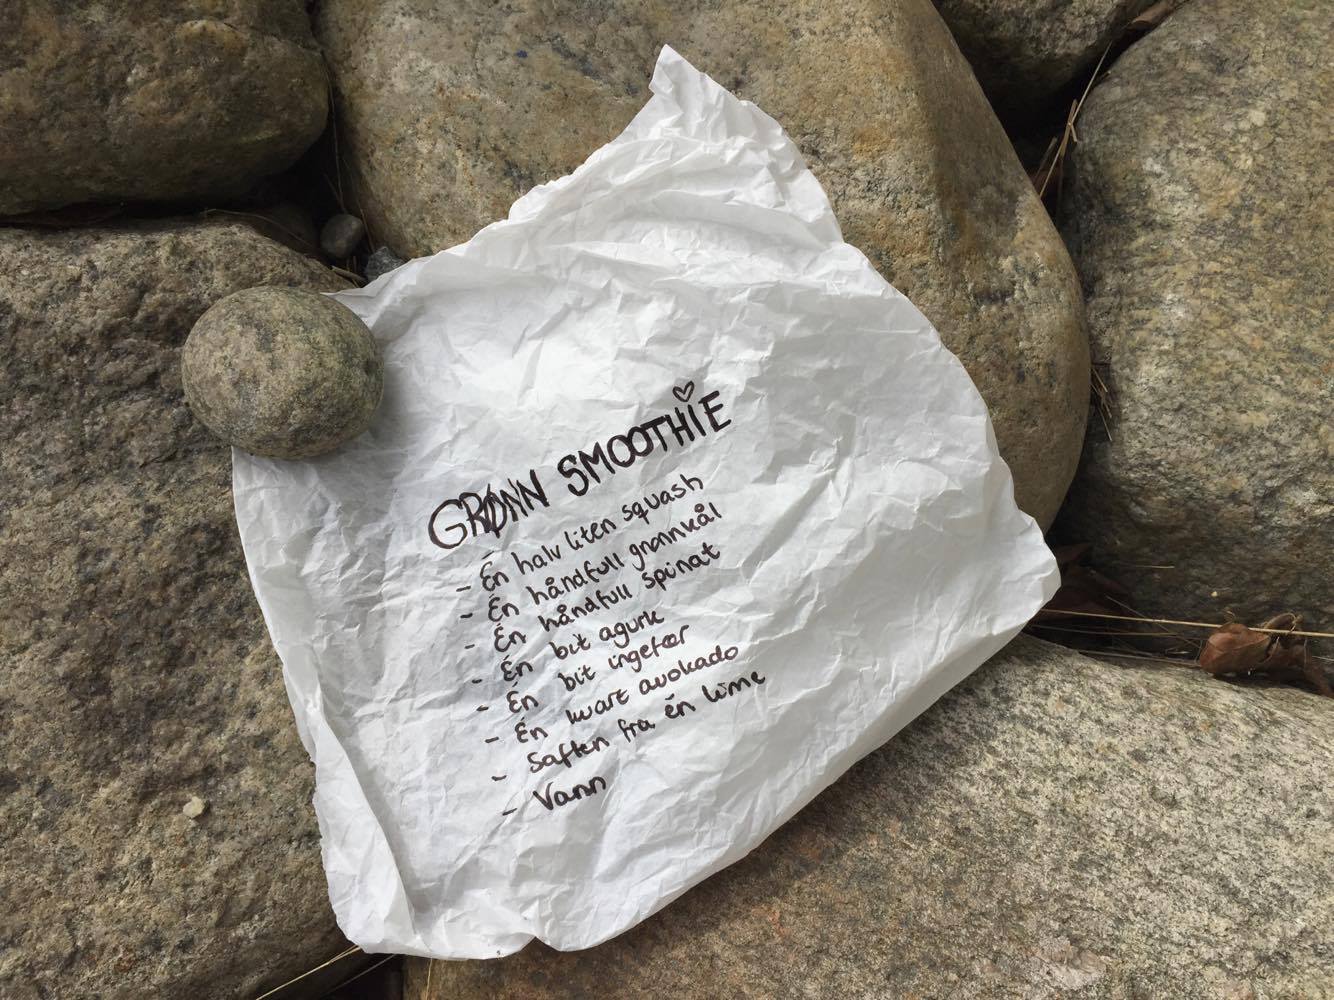 GRØNN SMOOTHIE
- Én halv liten squash
- Én håndfull grønnkål
- Én håndfull spinat
- Én bit agurk
- Én bit ingefær
- Én kvart avokado
- Saften fra én lime
- Vann